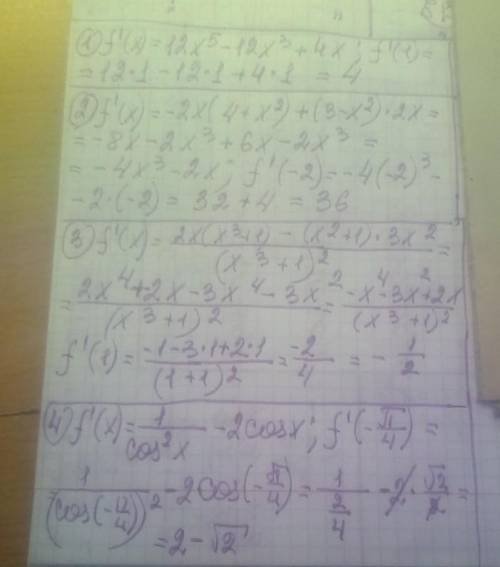 ① f'(x) = 12x⁵ - 12x³ + 4x; f'(1) =
= 12·1 - 12·1 + 4·1 = 4
② f'(x) = -2x(4+x²) + (3-x²)·2x =
= -8x - 2x³ + 6x - 2x³ =
= -4x³ - 2x; f'(-2) = -4(-2)³ -
-2·(-2) = 32 + 4 = 36
③ f'(x) = (2x(x³+1) - (x²+1)·3x²)/(x³+1)² =
= (2x⁴+2x-3x⁴-3x²)/(x³+1)² = (-x⁴-3x²+2x)/(x³+1)²
f'(1) = (-1-3·1+2·1)/(1+1)² = -2/4 = -1/2
④ f'(x) = 1/cos²x - 2cosx; f'(-π/4) =
= 1/(cos(-π/4))² - 2cos(-π/4) = 1/(2/4) - 2·√2/2 =
= 2 - √2